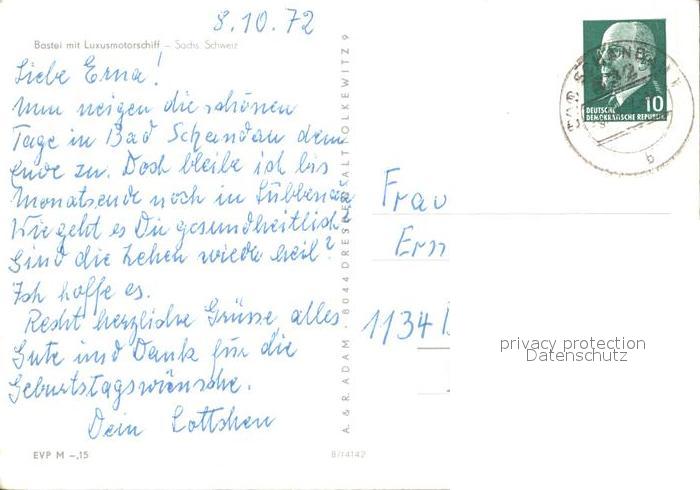 8.10.72
Bastei mit Luxusmotorschiff – Sächs. Schweiz
Liebe Erna!
Nun neigen die schönen
Tage in Bad Schandau dem
Ende zu. Doch bleibe ich bis
Monatsende noch in Lübbenau
Wie geht es Dir gesundheitlich
Sind die Zehen wieder heil?
Ich hoffe es.
Recht herzliche Grüsse alles
Gute und Dank für die
Geburtstagswünsche.
Dein Lottchen
EVP M –,15
8/14142
A. & R. ADAM · 8044 DRESDEN-ALTTOLKEWITZ 9
DEUTSCHE
DEMOKRATISCHE REPUBLIK
10
b
Frau
Ern
1134
privacy protection
Datenschutz